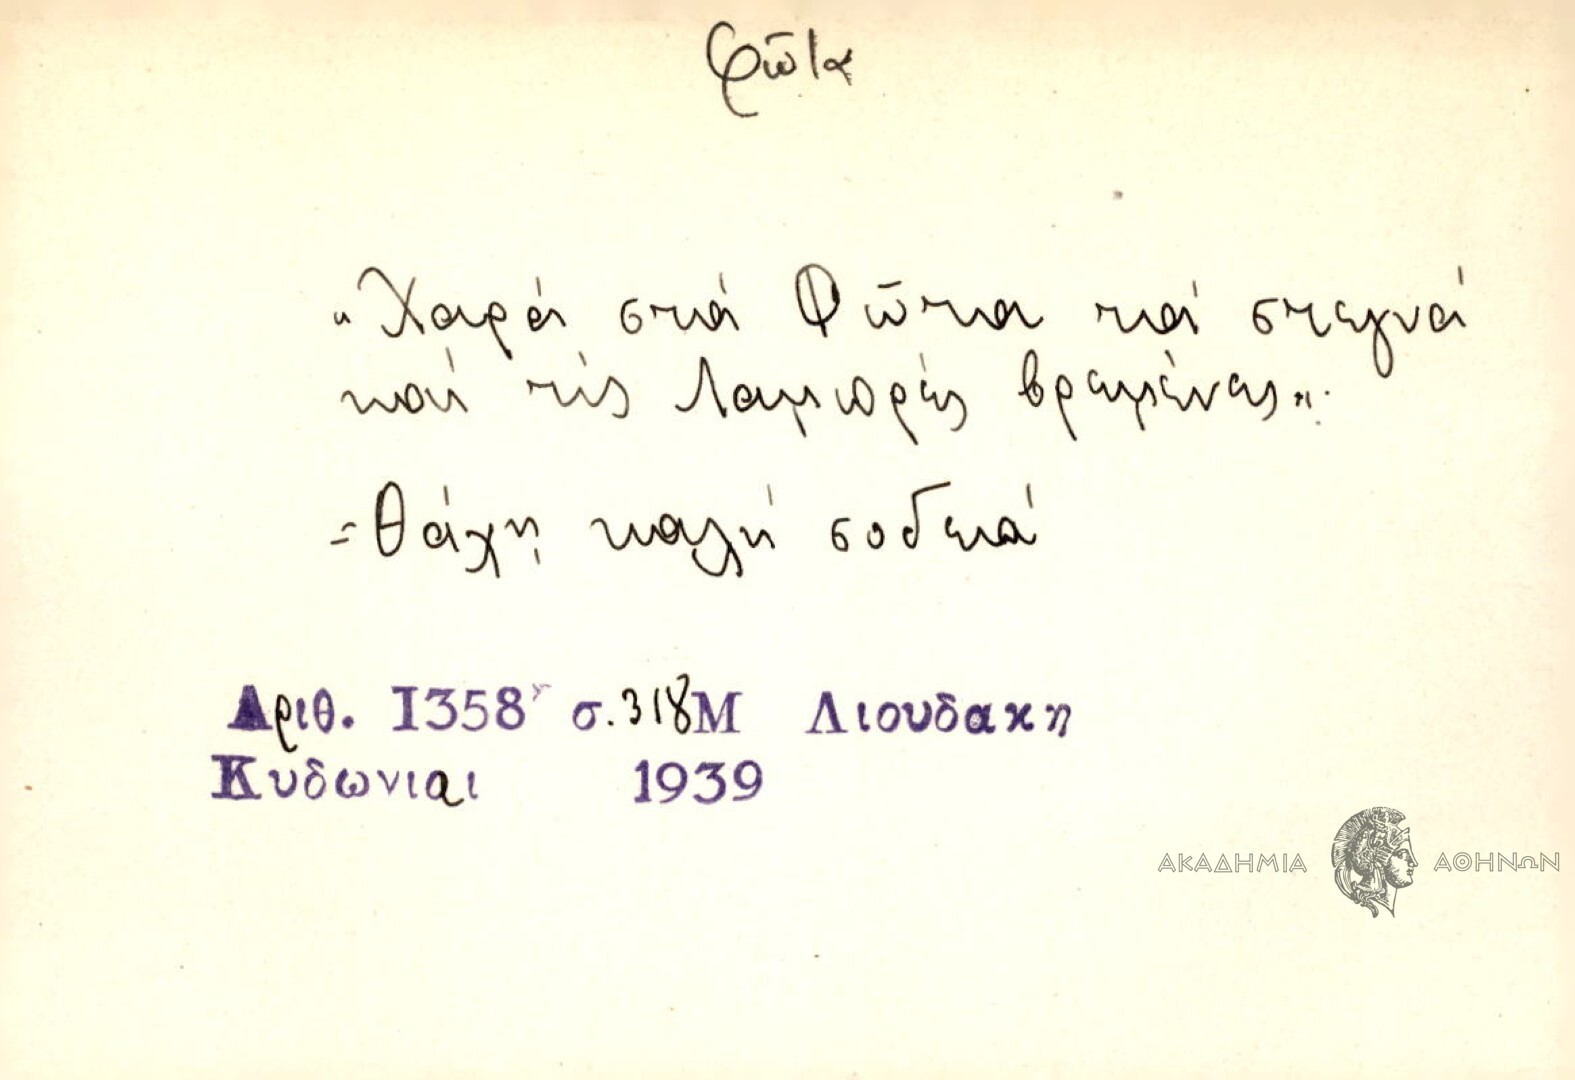 φῶτα
"Χαρά στά Φῶτα τά στεγνά
καί τίς Λαμπρές βρεμένες".
=Θάχῃ καλή σοδειά
Αριθ. 1358 σ. 318 Μ Λιουδακη
Κυδωνιαι 1939
ΑΚΑΔΗΜΙΑ ΑΘΗΝΩΝ